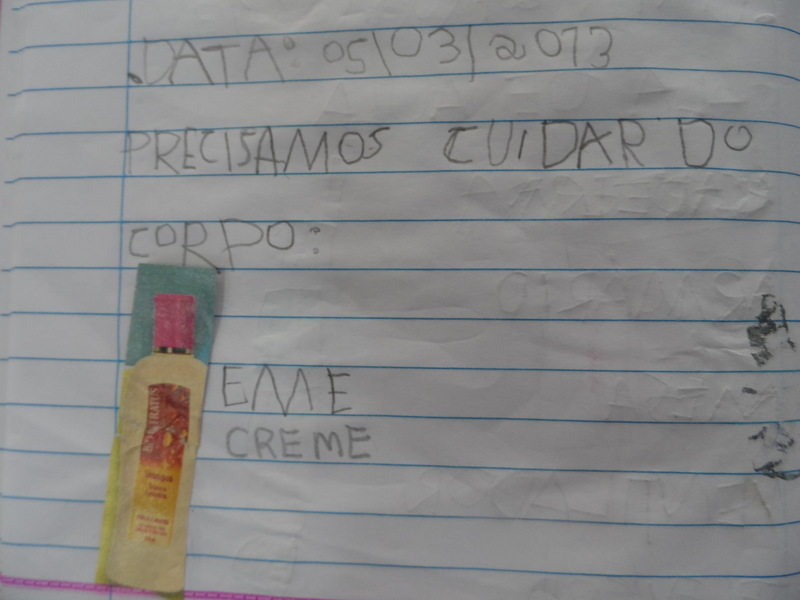 DATA: 05/03/2013
PRECISAMOS CUIDAR DO
CORPO:
EME
CREME
Shampoo